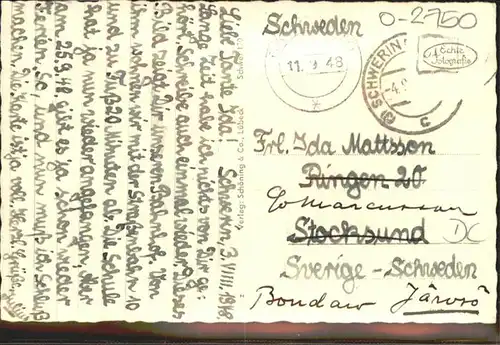 Schweden
O-2750
11.9.48
SCHWERIN
-4.
c
Echte
Fotografie
Schwerin, 3. VIIII. 1948
Liebe Tante Ida!
Lange Zeit habe ich nichts von Dir ge-
hört. Schreibe auch einmal wieder. Dieses
Bild zeigt Dir unseren Bahnhof. Von
ihm wohnen wir mit der Straßenbahn 10
und zu Fuß 20 Minuten ab. Die Schule
hat ja nun wieder angefangen. Aber
am 25.9.48 gibt es ja schon wieder
Ferien. So, und nun muß ich Schluß
machen, die Karte ist ja voll. Herzl. Grüße
Verlag: Schöning & Co., Lübeck
Frl. Ida Mattsson
Ringen 20
c/o Marcusson
Stocksund
Sverige - Schweden
Bondaw Järvsö